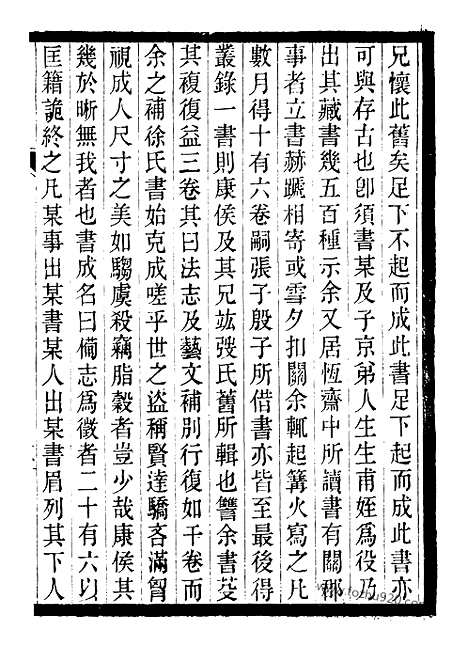 兄懷此舊矣足下不起而成此書足下起而成此書亦
可與存古也卽須書某及子京第人生生甫姪爲役乃
出其藏書幾五百種示余又居恆齋中所讀書有關郡
事者立書赫蹏相寄或雪夕扣關余輒起篝火寫之凡
數月得十有六卷嗣張子殷子所借書亦皆至最後得
叢錄一書則康侯及其兄竑弢氏舊所輯也讐余書芟
其複復益三卷其曰法志及藝文補別行復如千卷而
余之補徐氏書始克成嗟乎世之盜稱賢達驕吝滿胷
視成人尺寸之美如騶虞殺竊脂榖者豈少哉康侯其
幾於晰無我者也書成名曰備志爲徵者二十有六以
匡籍詭終之凡某事出某書某人出某書眉列其下人